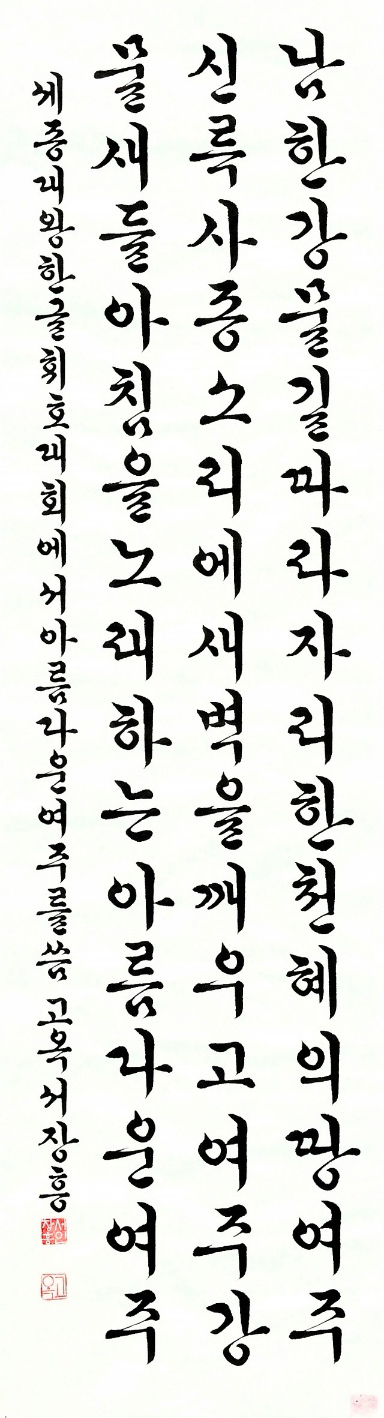 남한강물길따라자리한천혜의땅여주
신륵사종소리에새벽을깨우고여주강
물새들아침을노래하는아름다운여주
세종대왕한글휘호대회에서아름다운여주를씀 고옥서장흥